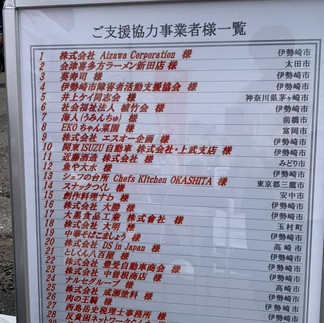 ご支援協力事業者様一覧
1 株式会社 Aizawa Corporation 様 伊勢崎市
2 会津喜多方ラーメン新田店 様 太田市
3 葵寿司 様 伊勢崎市
4 伊勢崎市障害者活動支援協会 様 伊勢崎市
5 井上ケイ同志会 様 神奈川県茅ヶ崎市
6 社会福祉法人 植竹会 様 伊勢崎市
7 海人(うみんちゅ) 様 前橋市
8 EKOちゃん菜園 様 富岡市
9 株式会社 エスオー企画 様 伊勢崎市
10 関東ISUZU自動車 株式会社・上武支店 様 伊勢崎市
11 近藤酒造 株式会社 様 みどり市
12 魚や大水 様 伊勢崎市
13 シェフの台所 Chefs Kitchen OKASHITA 様 東京都三鷹市
14 スナックつくし 様 安中市
15 創作料理ナカ 様 伊勢崎市
16 株式会社 大勝 様 伊勢崎市
17 大黒食品工業 株式會社 様 玉村町
18 株式会社 大明 様 伊勢崎市
19 中華そばましょう 様 伊勢崎市
20 株式会社 DS in Japan 様 高崎市
21 としくん八百屋 様 伊勢崎市
22 株式会社 豊愛自動車商会 様 伊勢崎市
23 株式会社 中曽根商店 様 伊勢崎市
24 ナルセグループ 様 高崎市
25 株式会社 成瀬塗料 様 伊勢崎市
26 肉の王関 様 伊勢崎市
27 西島岳史税理士事務所 様 伊勢崎市
28 伊勢崎市